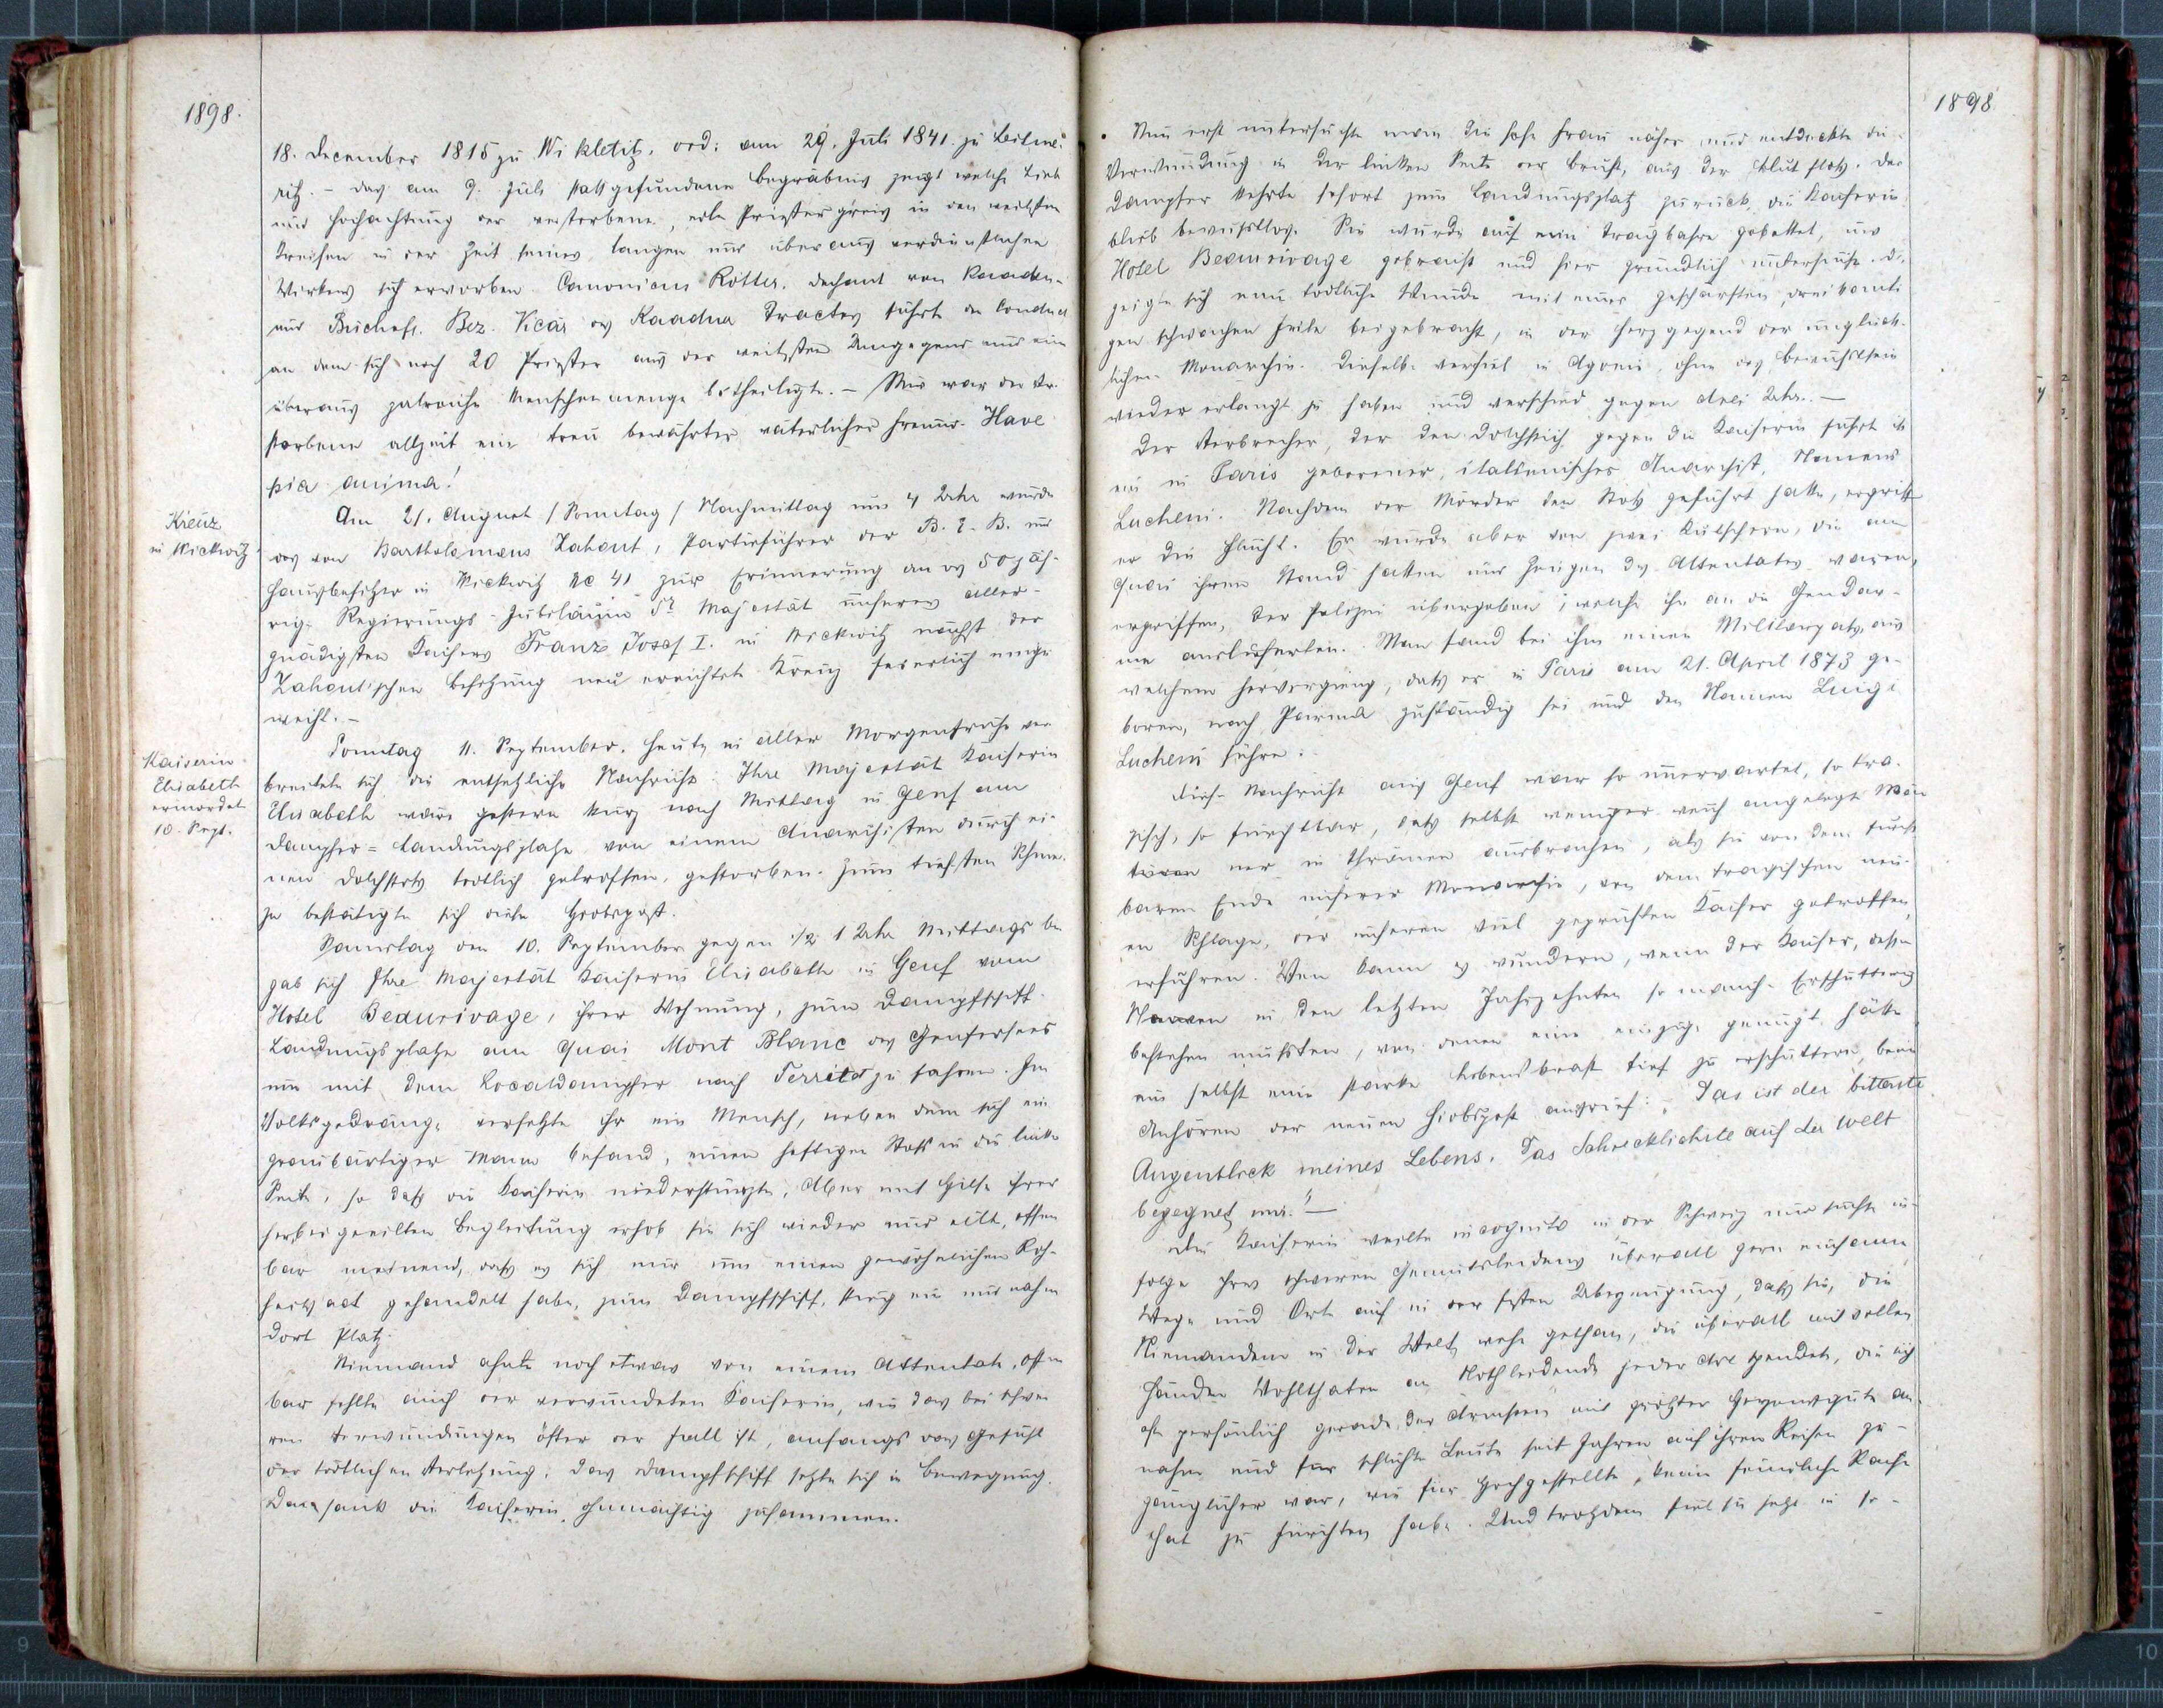 1898.
18. December 1815 zu Wikletitz, ord: am 29. Juli 1841 zu Leitme-
ritz. – Das am 9. Juli stattgefundene Begräbnis zeigt welche Liebe
und Hochachtung der verstorbene, edle Priestergreis in den weitesten
Kreisen in der Zeit seines langen und überaus verdienstlichen
Wirkens sich erworben. Canonicus Rotter, Dechant von Kaaden
und Bischöfl. Bez. Vicär des Kaadner Tractes führte den Conduct
an dem sich noch 20 Priester aus der weitesten Umgegend und eine
überaus zalreiche Menschenmenge betheiligte. – Mir war der Ver-
storbene allzeit ein treu bewährter, väterlicher Freund. Have
pia anima!
Kreuz
in Wickwitz
Am 21. August /Sonntag/ Nachmittag um 4 Uhr wurde
das von Bartholomäus Zahout, Partieführer der B. E. B. und
Hausbesitzer in Wickwitz Nc 41 zur Erinnerung an das 50jäh-
rig. Regierungs-Jubiläum Sr Majestät unseres aller-
gnädigsten Kaisers Franz Josef I. in Wickwitz nächst der
Zahoutischen Besitzung neu errichtete Kreuz feierlich einge-
weiht. –
Kaiserin
Elisabeth
ermordet
10. Sept.
Sonntag 11. September. Heute in aller Morgenfrühe ver
breitete sich die entsetzliche Nachricht: Ihre Majestät Kaiserin
Elisabeth wäre gestern kurz nach Mittag in Genf am
Dampfer=Landungsplatze von einem Anarchisten durch ei-
nen Dolchstoß tödtlich getroffen, gestorben. Zum tiefsten Schmer-
ze bestätigte sich diese Hiobspost.
Samstag den 10. September gegen 1/2 1 Uhr Mittags be
gab sich Ihre Majestät Kaiserin Elisabeth in Genf vom
Hotel Beaurivage, ihrer Wohnung, zum Dampfschiff-
Landungsplatze am Quai Mont Blanc des Genfersees
um mit dem Localdampfer nach Territet zu fahren. Im
Volksgedränge versetzte ihr ein Mensch, neben dem sich ein
graubärtiger Mann befand, einen heftigen Stoß in die linke
Seite, so daß die Kaiserin niederstürzte. Aber mit Hilfe ihrer
herbeigeeilten Begleitung erhob sie sich wieder und eilte, offen
bar meinend, daß es sich nur um einen gewöhnlichen Roh-
heitsact gehandelt habe, zum Dampfschiff, stieg ein und nahm
dort Platz.
Niemand ahnte noch etwas von einem Attentate, offen
bar fehlte auch der verwundeten Kaiserin, wie das bei schwe
ren Verwundungen öfter der Fall ist, anfangs das Gefühl
der tödtlichen Verletzung. Das Dampfschiff setzte sich in Bewegung.
Da sank die Kaiserin ohnmächtig zusammen.
1898
Nun erst untersuchte man die hohe Frau näher und entdeckte die
Verwundung in der linken Seite der Brust, aus der Blut floß. Der
Dampfer kehrte sofort zum Landungsplatz zurück, die Kaiserin
blieb bewußtlos. Sie wurde auf eine Tragbahre gebettet, ins
Hotel Beaurivage gebracht und hier gründlich untersucht. Da
zeigte sich eine tödtliche Wunde mit einer geschärften, dreikanti
gen schwachen Feile beigebracht, in der Herzgegend der unglück-
lichen Monarchin. Dieselbe verfiel in Agonie, ohne das Bewußtsein
wieder erlangt zu haben und verschied gegen drei Uhr. –
Der Verbrecher, der den Dolchstich gegen die Kaiserin führte ist
ein in Paris geborener, italienischer Anarchist, Namens
Lucheni. Nachdem der Mörder den Stoß geführt hatte, ergriff
er die Flucht. Er wurde aber von zwei Kutschern, die am
Quai ihren Stand hatten und Zeugen des Attentates waren,
ergriffen, der Polizei übergeben, welche ihn an die Gendar-
me auslieferten. Man fand bei ihm einen Militärpaß, aus
welchem hervorgieng, daß er in Paris am 21. April 1873 ge-
boren, nach Parma zuständig sei und den Namen Luigi
Lucheni führe.
Diese Nachricht aus Genf war so unerwartet, so tra-
gisch, so furchtbar, daß selbst weniger weich angelegte Män
ner in Thränen ausbrachen, als sie von dem furcht
baren Ende unserer Monarchin, von dem tragischen neu-
en Schlage, der unseren viel geprüften Kaiser getroffen,
erfuhren. Wen kann es wundern, wenn der Kaiser, dessen
Nerven in den letzten Jahrzehnten so manche Erschütterung
bestehen mußten, von denen eine einzige genügt hätte,
um selbst eine starke Lebenskraft tief zu erschüttern, beim
Anhören der neuen Hiobspost ausrief: „Das ist der bitterste
Augenblick meines Lebens. Das Schrecklichste auf der Welt
begegnet mir.“ –
Die Kaiserin weilte incognito in der Schweiz und suchte in-
folge ihres schweren Gemütsleidens überall gern einsame
Wege und Orte auf in der festen Überzeugung, daß sie, die
Niemandem in der Welt wehe gethan, die überall mit vollen
Händen Wohlthaten an Nothleidende jeder Art spendete, die sich
oft persönlich gerade der Ärmsten mit größter Herzensgüte an-
nahm und für schlichte Leute seit Jahren auf ihren Reisen zu-
gänglicher war, wie für Hochgestellte, keine feindliche Rache
that zu fürchten habe. Und trotzdem fiel sie jetzt in so-
9
10